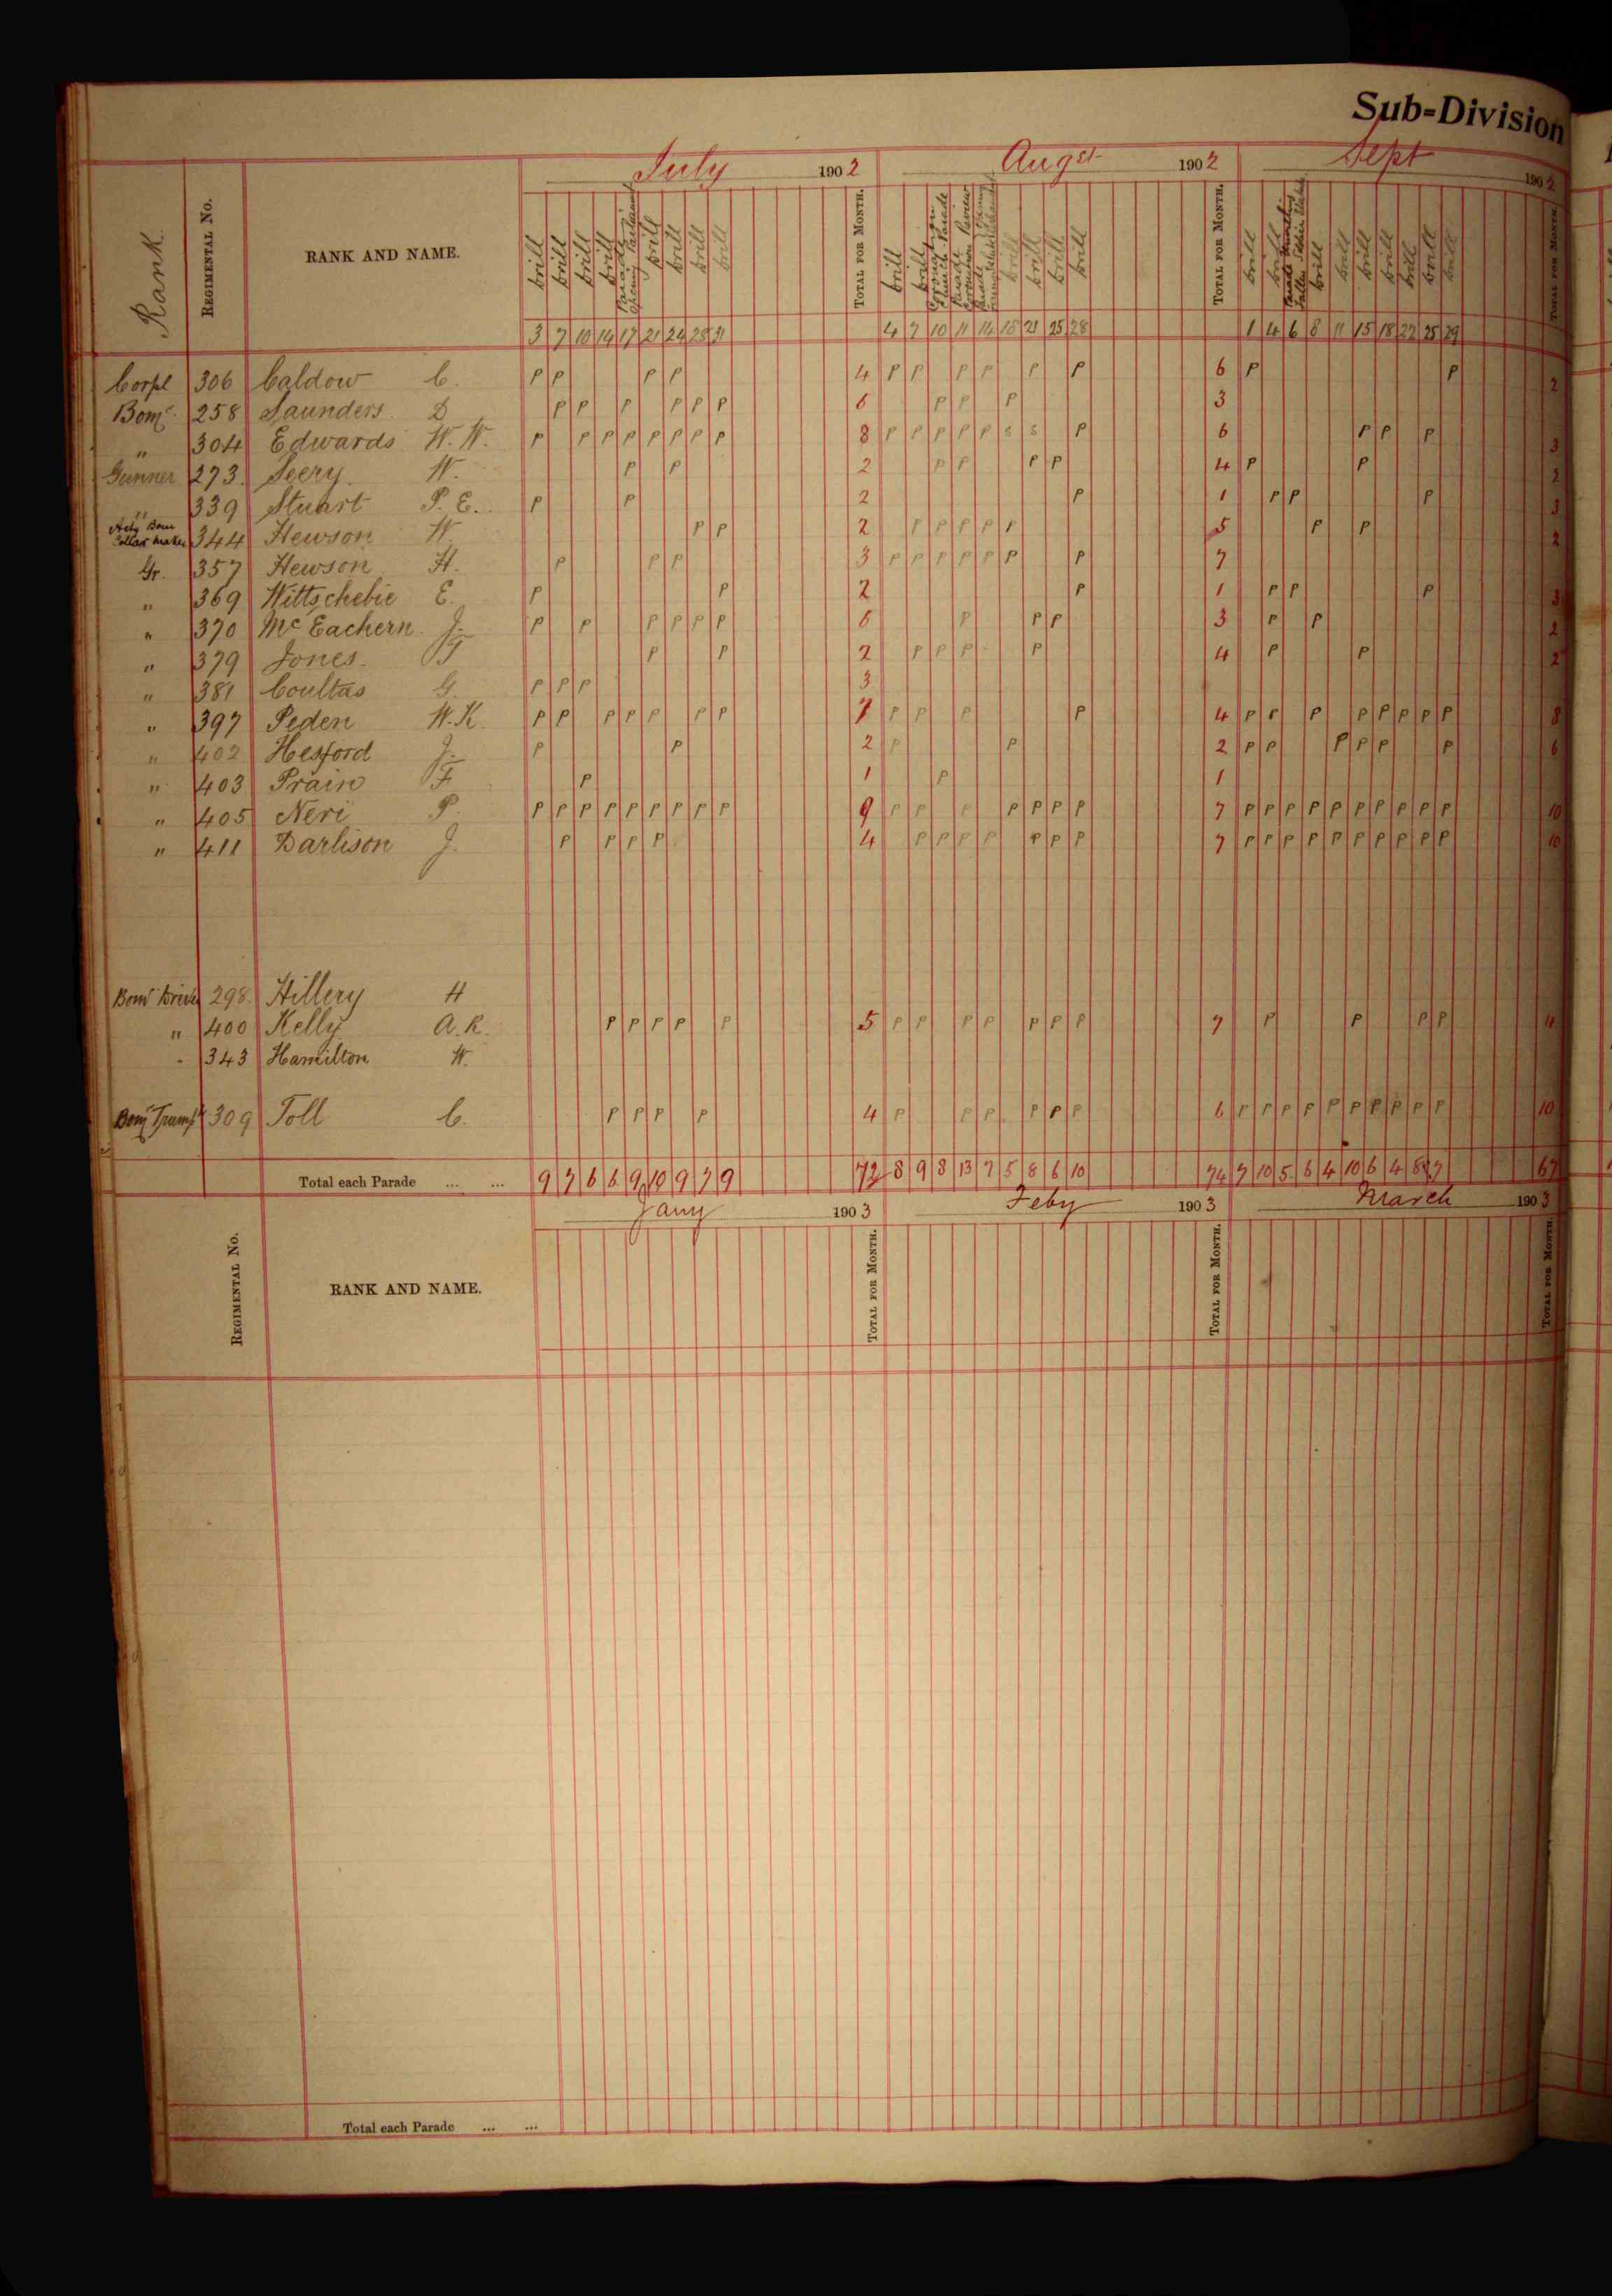 Sub-Division
July 1902 Augst 1902 Sept 1902
Rank REGIMENTAL No. RANK AND NAME. Drill Drill Drill Drill Parade Opening Parliament Drill Drill Drill Drill TOTAL FOR MONTH. Drill Drill Coronation Church Parade Parade Coronation Review Parade Drill Drill Drill Drill TOTAL FOR MONTH. Drill Drill Parade Unveiling Fallen Soldiers Statue Drill Drill Drill Drill Drill Drill Drill TOTAL FOR MONTH.
3 7 10 14 17 21 24 28 31 4 7 10 11 14 18 21 25 28 1 4 6 8 11 15 18 22 25 29
Corpl 306 Caldow C. P P P P 4 P P P P P P 6 P P 2
Bomr. 258 Saunders D P P P P P P 6 P P P 3
" 304 Edwards W. W. P P P P P P P P 8 P P P P P S S P 6 P P P 3
Gunner 273. Seery W. P P 2 P P P P 4 P P 2
" 339 Stuart P. E. P P 2 P 1 P P P 3
Actg Bom Collar Maker 344 Hewson W. P P 2 P P P P P 5 P P 2
Gr. 357 Hewson H. P P P 3 P P P P P P P 7
" 369 Wittschebie E. P P 2 P 1 P P P 3
" 370 McEachern J. P P P P P P 6 P P P 3 P P 2
" 379 Jones. T P P 2 P P P P 4 P P 2
" 381 Coultas G. P P P 3
" 397 Peden W. K. P P P P P P P 7 P P P P 4 P P P P P P P P 8
" 402 Hesford J. P P 2 P P 2 P P P P P P 6
" 403 Prain F P 1 P 1
" 405 Neri P. P P P P P P P P P 9 P P P P P P P 7 P P P P P P P P P P 10
" 411 Darlison J. P P P P 4 P P P P P P P 7 P P P P P P P P P P 10
298. Hillery H
" 400 Kelly A. R. P P P P P 5 P P P P P P P 7 P P P P 4
343 Hamilton W.
309 Toll C. P P P P 4 P P P P P P 6 P P P P P P P P P P 10
Total each Parade ... ... 9 7 6 6 9 10 9 7 9 72 8 9 8 13 7 5 8 6 10 74 7 10 5 6 4 10 6 4 8 7 67
Jany 1903 Feby 1903 March 1903
REGIMENTAL No. RANK AND NAME. TOTAL FOR MONTH. TOTAL FOR MONTH. TOTAL FOR MONTH.
Total each Parade ... ...